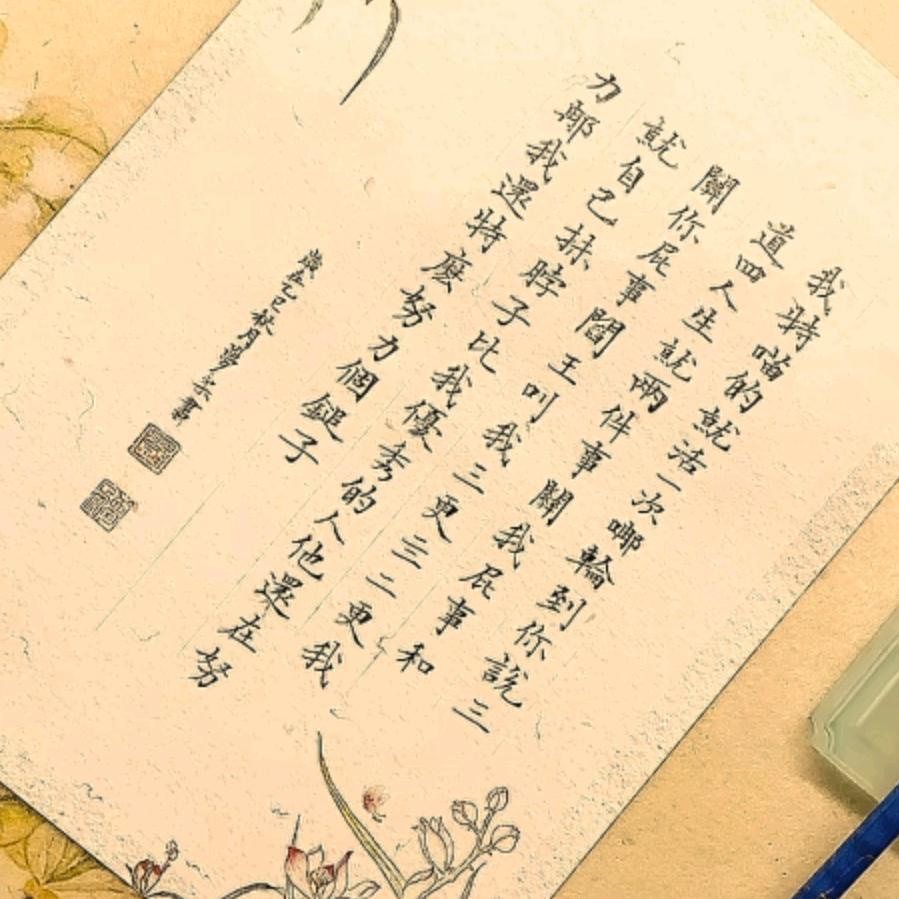 我特喵的就活一次哪輪到你說三
道四人生就兩件事關我屁事和
關你屁事閻王叫我三更三二更我
就自己抹脖子比我優秀的人他還在努
力那我還特麼努力個鎚子
歲在乙巳秋月夢云書